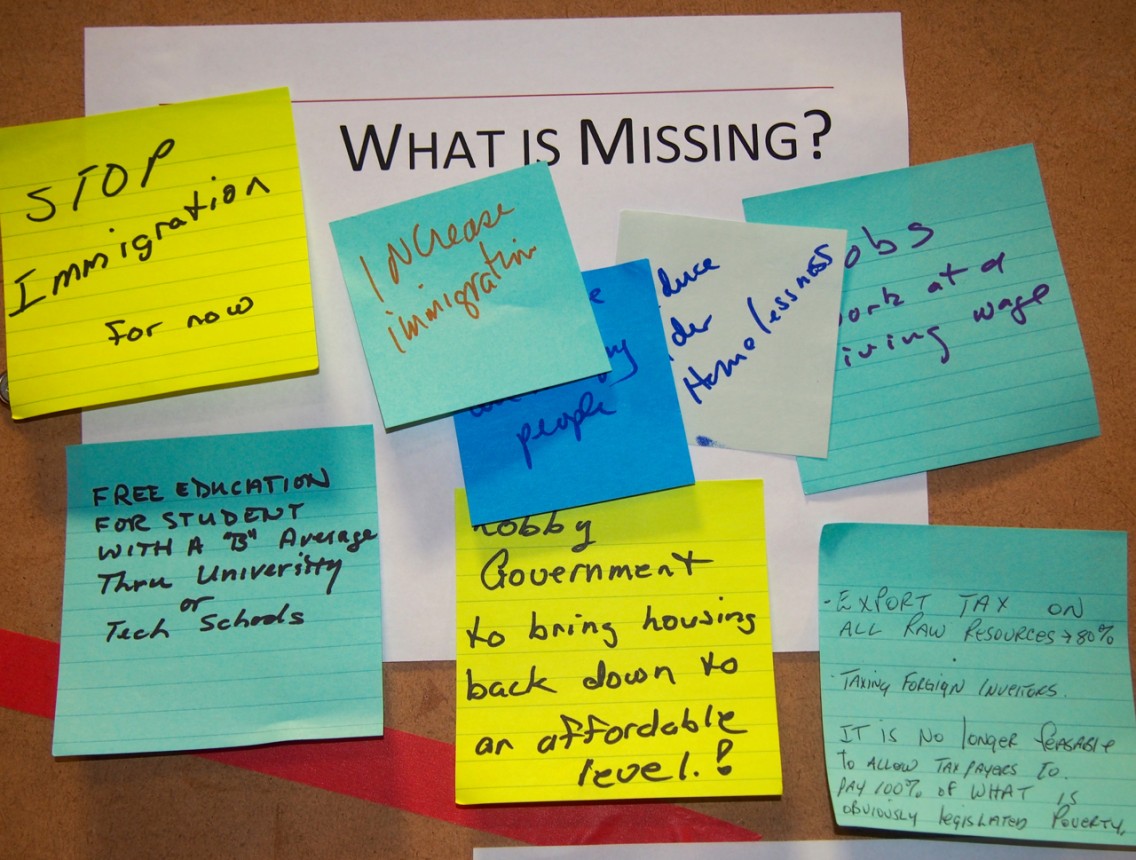 WHAT IS MISSING?
STOP
Immigration
for now
INCrease
immigration
people
Homelessness
at a
wage
FREE EDUCATION
FOR STUDENT
WITH A "B" Average
Thru Univerisity
or
Tech Schools
Lobby
Government
to bring housing
back down to
an affordable
level.!
- EXPORT TAX ON
ALL RAW RESOURCES → 80%
- TAXING FORGIGN INVEITORS.
IT IS NO longer feasable
to ALLOW TAX PAYERS TO.
PAY 100% of WHAT IS
obviously legislated Poverty.